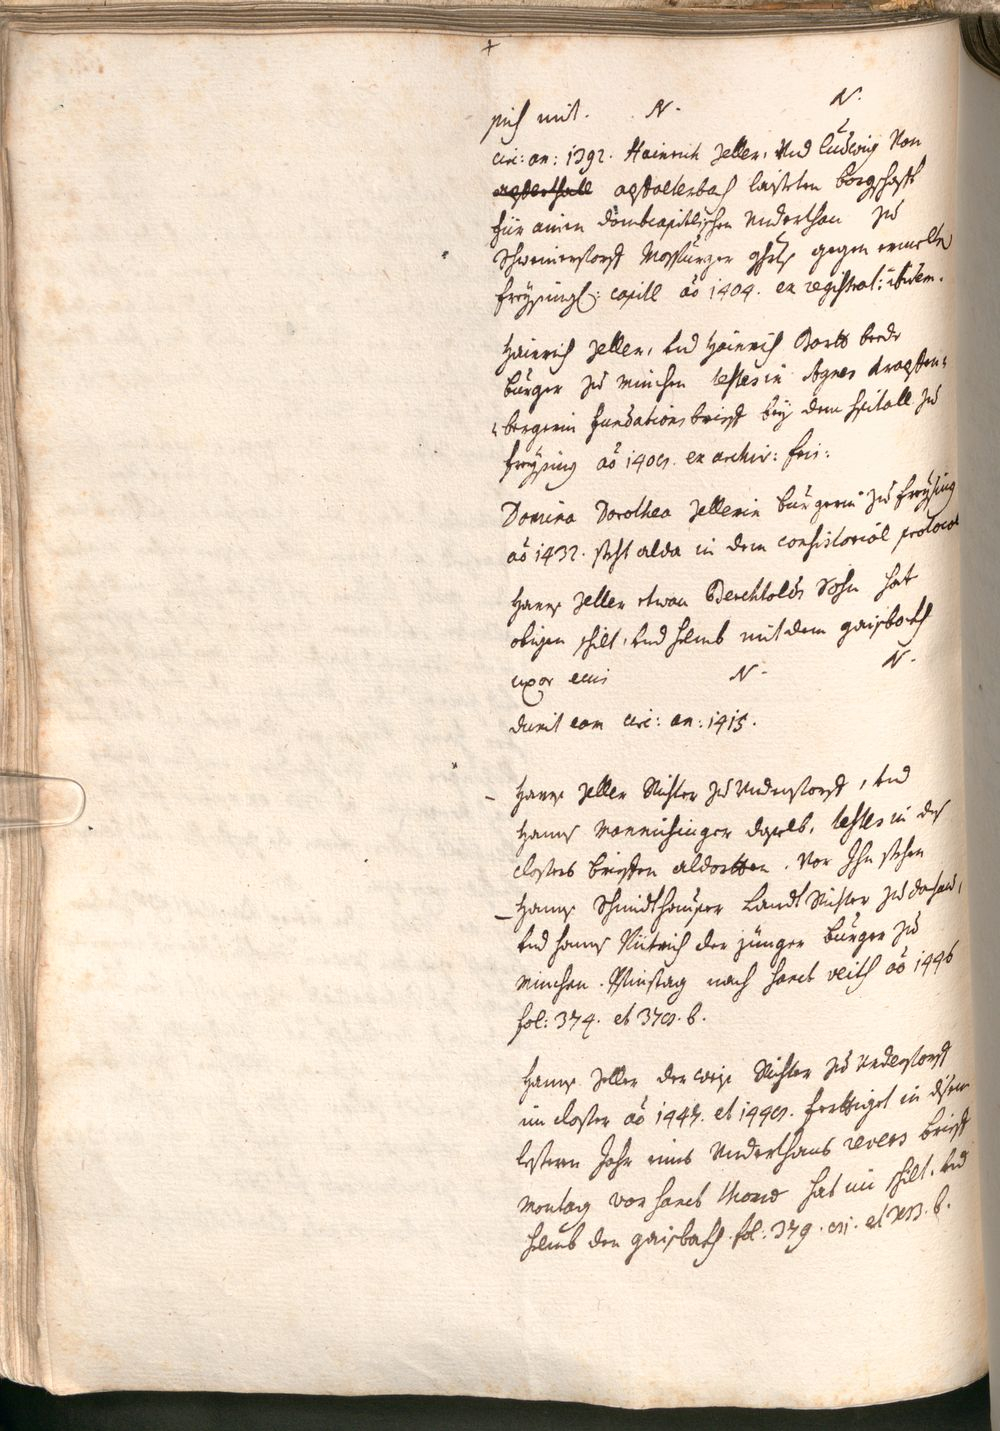 sich mit. N. N.
circ: an: 1392. Hainrich Zeller, Und Ludwig Von
aystaltenbach laisteten borgschafft
für ainen dombcapitlischen Underthan zu
Schweinerstorff Mospurger ghts gegen ermelte
freysing: capitl ao 1404. ex registrat: ibidem.
Hainrich Zeller, und Hainrich Bartt beede
burger zu München testes in Agnes
bergerin fundations brieff bey dem spitall zu
freysing ao 1406. ex archiv: fris:
Domina Dorothea Zellerin burgerin zu freysing
ao 1432. steht alda in dem consistorial protocol
Hanns Zeller etwan Berchtolds Sohn hat
obigen schilt, und helmb mit dem gaisbockh
uxor eius N. N.
duxit eam circ: an: 1415.
- Hanns Zeller Richter zu Understorff, und
Hanns daselb, testes in des
closters brieffen aldortten. Vor Ihn stehen
- Hanns Schmidthauser Landt Richter zu dachau,
und Hanns Ridtrich der jünger burger zu
München. Pfinstag nach Sanct Veith ao 1446
fol: 374. et 376. b.
Hanns Zeller der Richter zu Understorff
im closter ao 1445. et 1446. ferttiget in disem
lestern Jahr eins Underthans revers brieff
Montag vor Sanct Thoma hat im schilt, und
helmb den gaisbockh. fol: 379. et b.